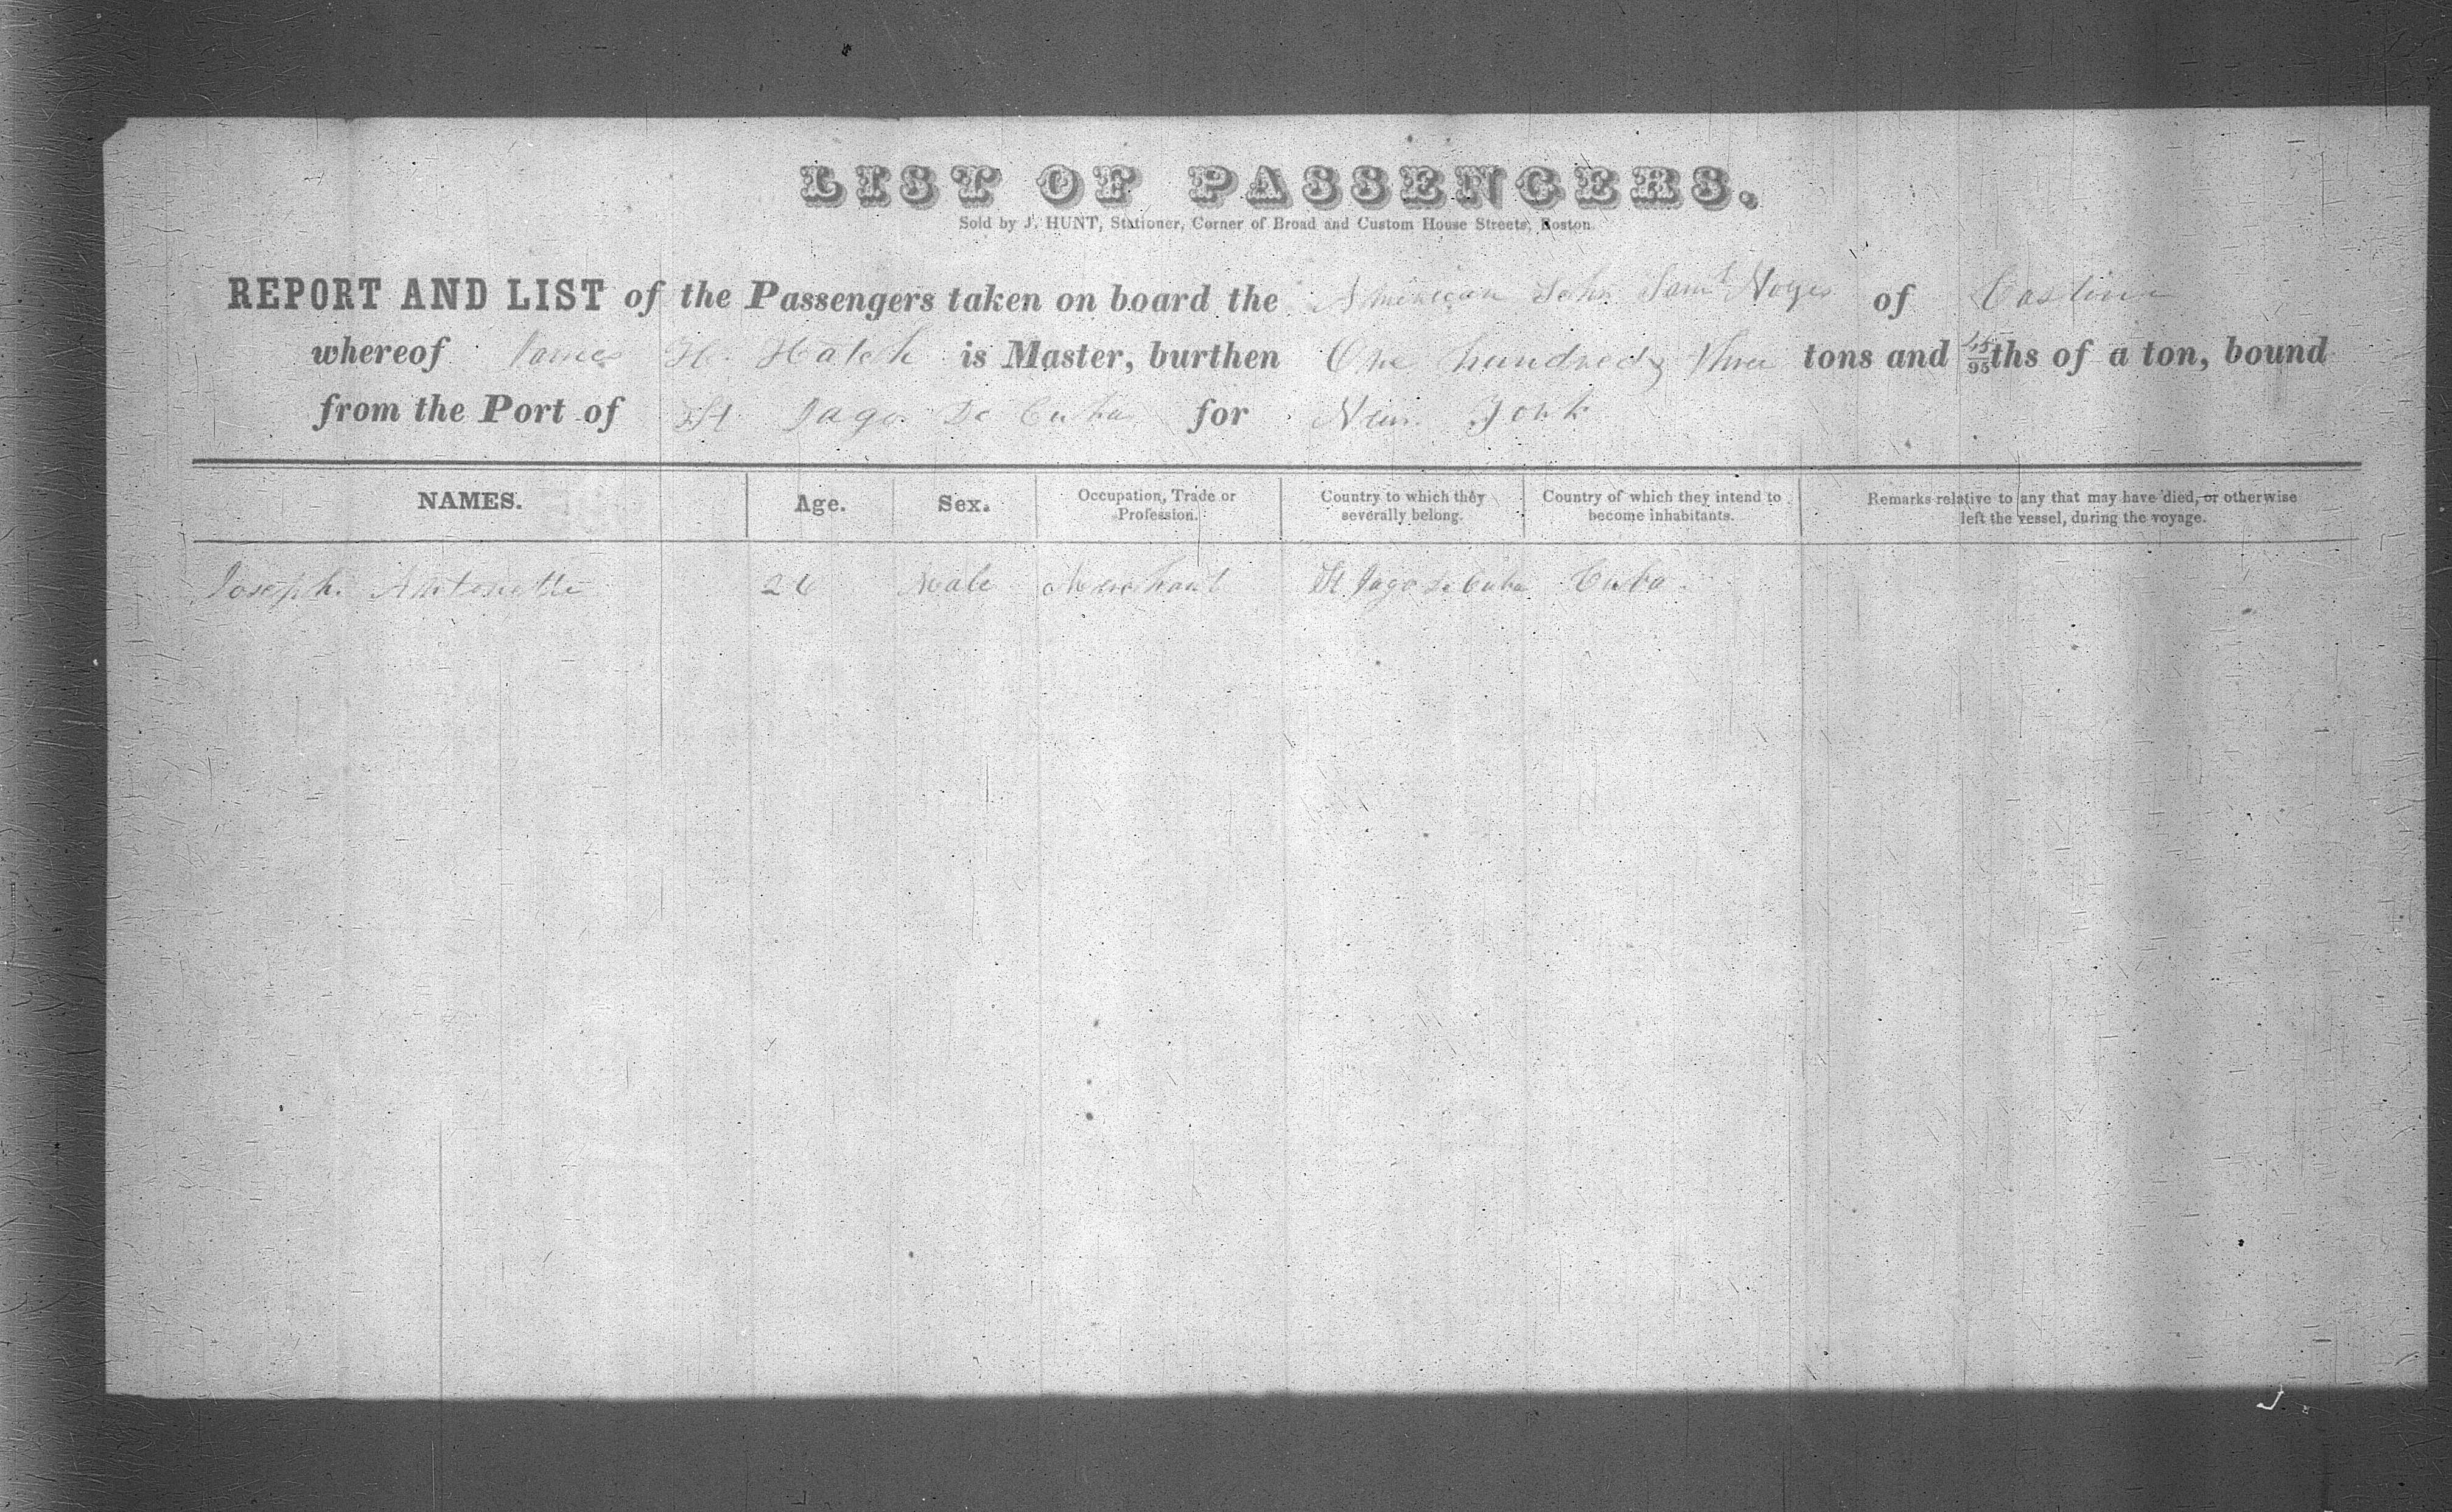 LIST OF PASSENGERS.
Sold by J. HUNT, Stationer, Corner of Broad and Custom House Streets, Boston.
REPORT AND LIST of the Passengers taken on board the American Schr Saml Noyes of Castine
whereof James H. Hatch is Master, burthen One hundred & three tons and 45/95ths of a ton, bound
from the Port of St Jago De Cuba for New York
NAMES. Age. Sex. Occupation, Trade or Profession. Country to which they severally belong. Country of which they intend to become inhabitants. Remarks relative to any that may have died, or otherwise left the vessel, during the voyage.
Joseph Antonetti 26 Male Merchant St Jago De Cuba Cuba.